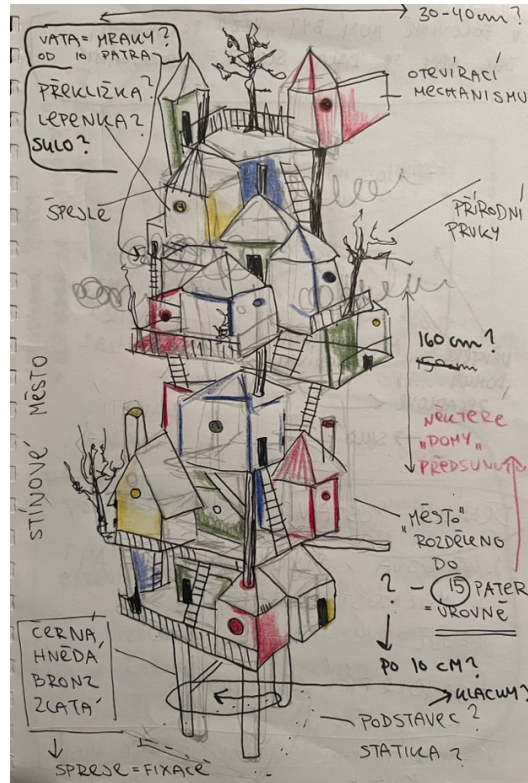 30-40cm?
VATA = MRAKY?
OD 10 PATRA
PŘEKLIŽKA?
LEPENKA?
SKLO?
OTEVÍRACÍ
MECHANISMU
ŠPEJLE
PŘÍRODNÍ
PRVKY
160 cm?
150 cm
NĚKTERÉ
"DOMY"
PŘEDSUNU
STÍNOVÉ MĚSTO
"MĚSTO"
ROZDĚLENO
DO
? - 15 PATER
= ÚROVNĚ
PO 10 CM?
ČERNÁ,
HNĚDÁ
BRONZ
ZLATÁ
SPREJE = FIXACE
PODSTAVEC?
STATIKA?